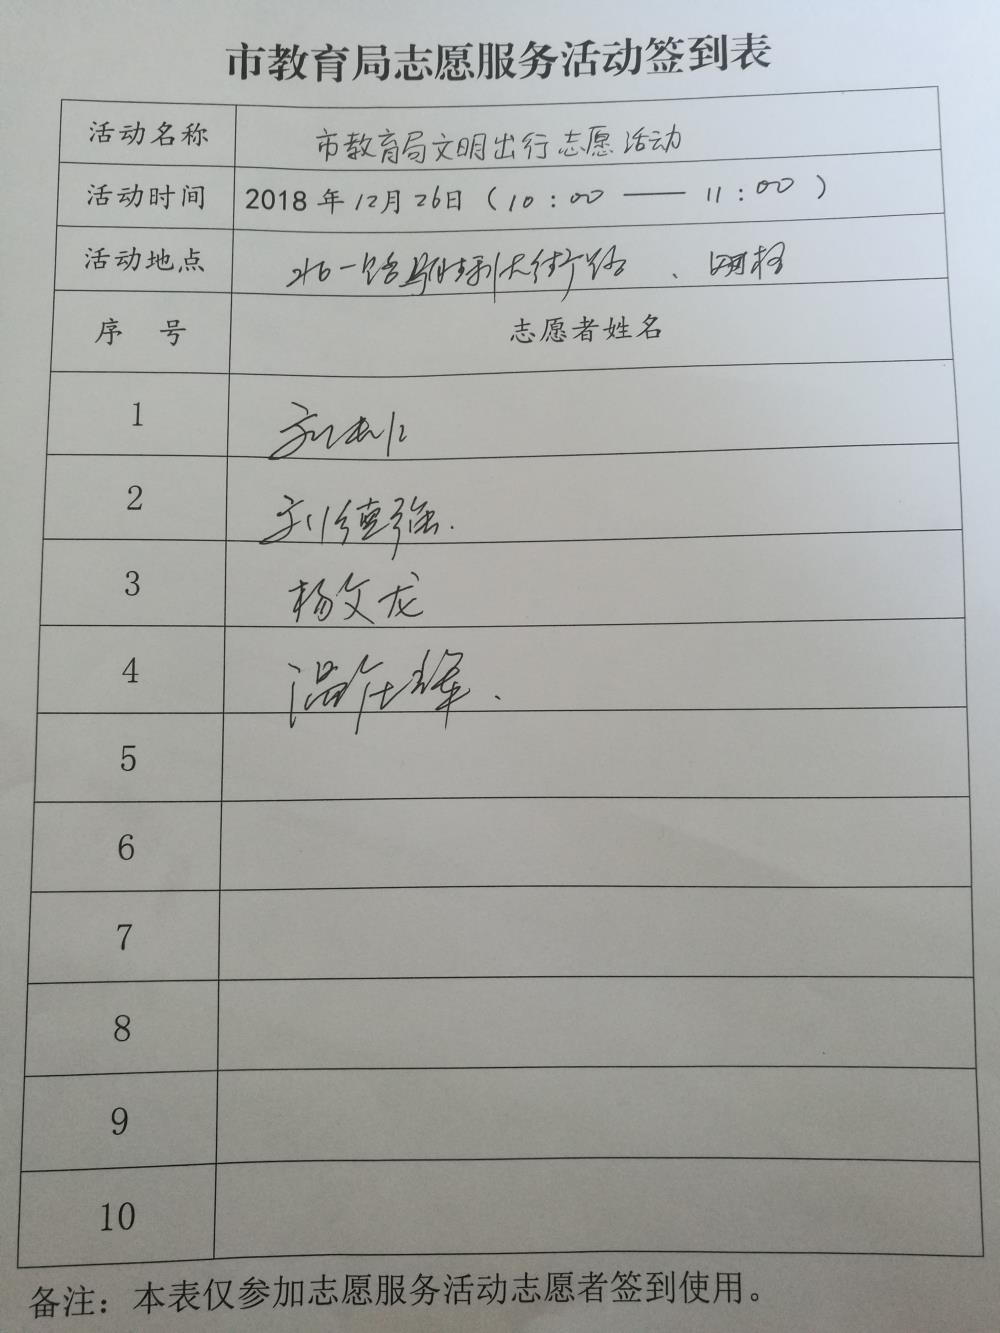 市教育局志愿服务活动签到表
活动名称 市教育局文明出行志愿活动
活动时间 2018年12月26日（10:00——11:00）
活动地点 北一路 胜利大街 路、
序 号 志愿者姓名
1 刘
2 刘德强.
3 杨文龙
4 温
5
6
7
8
9
10
备注：本表仅参加志愿服务活动志愿者签到使用。